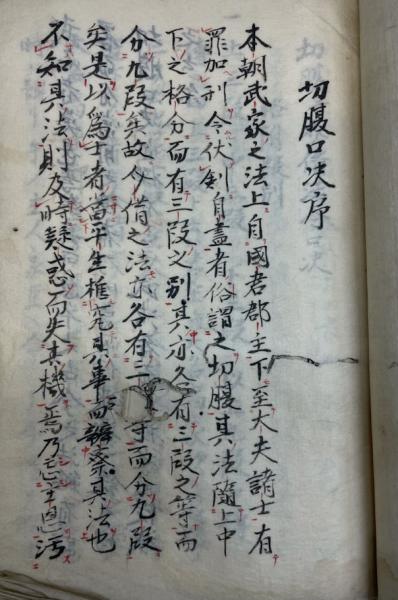 切腹口决序
本朝武家之法上自國君郡主下至大夫諸士有
罪加刑令伏劍自盡者俗謂之切腹其法隨上中
下之格分而有三段之別其亦各有三段之等而
分九段矣故介借之法亦各有三等而分九段
矣是以為士者當平生推究其事而辨察其法也
不知其法則及時疑惑而失其機焉乃忘主恩汚